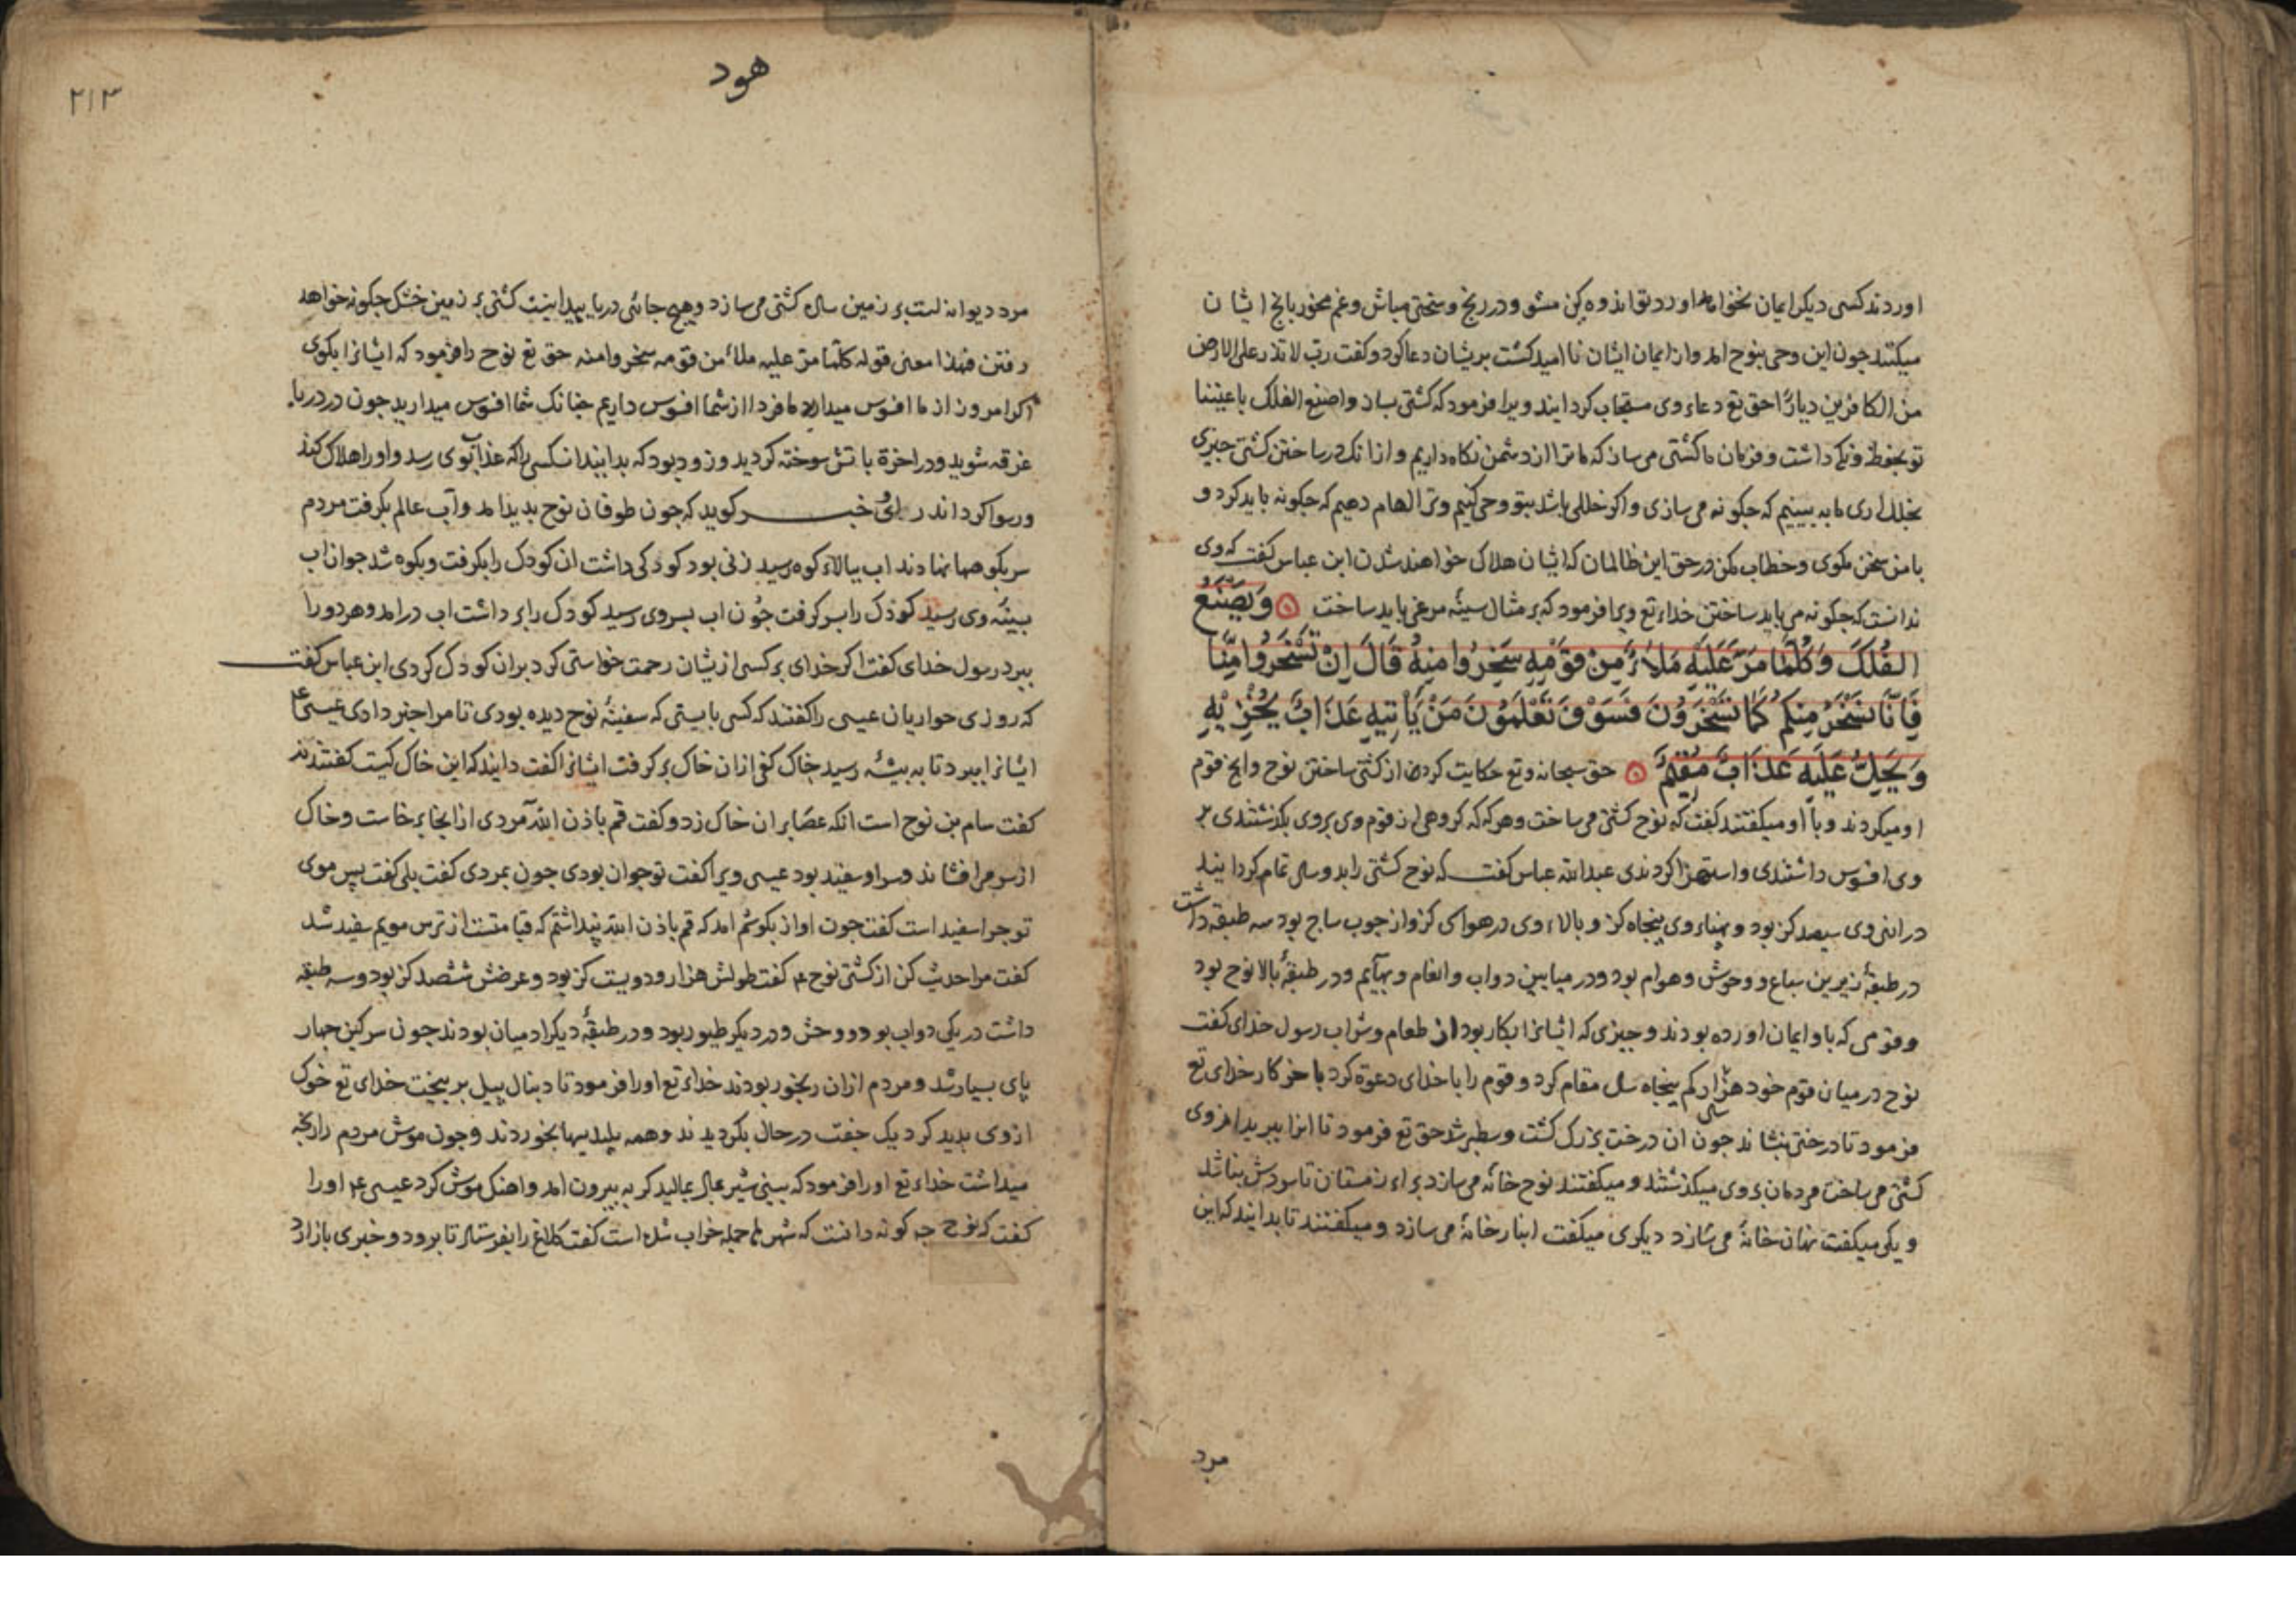 اوردند کسی دیکر ایمان نخواهد اورد تو اندوه کن مشو ودر رنج و سختی مباش وغم مخور بانج ایشان
میکنند جون این وحی بنوح امد واز ایمان ایشان نا امید کشت بریشان دعا کرد وکفت رب لا تذر علی الارض
من الکافرین دیارا حق تع دعاء وی مستجاب کردانید ویرا فرمود که کشتی بساز واصنع الفلک باعیننا
تو بحفظ ونکه داشت وفرمان ما کشتی می ساز که ما ترا از دشمن نکاه داریم وازانک در ساختن کشتی جیزی
بخلل اری ما به بینیم که جکونه می سازی واکر خللی باشد بتو وحی کنیم وترا الهام دهیم که جکونه باید کرد و
با من سخن مکوی وخطاب مکن در حق این ظالمان که ایشان هلاک خواهند شدن ابن عباس کفت که وی
ندانست که جکونه می باید ساختن خداء تع ویرا فرمود که بر مثال سینۀ مرغی باید ساخت وَيَصْنَعُ
الفُلْكَ وَكُلَّمَا مَرَّ عَلَيْهِ مَلَاءٌ مِنْ قَوْمِهِ سَخِرُوا مِنْهُ قَالَ اِنْ تَسْخَرُوا مِنَّا
فَاِنَّا نَسْخَرُ مِنْكُمْ كَمَا تَسْخَرُوْنَ فَسَوْفَ تَعْلَمُوْنَ مَنْ يَأْتِيهِ عَذَابٌ يُخْزِيْهِ
وَيَحِلُّ عَلَيْهِ عَذَابٌ مُقِيْمٌ حق سبحانه وتع حکایت کرد از کشتی ساختن نوح وانج قوم
او میکردند وبا او میکفتند کفت که نوح کشتی می ساخت وهرکه که کروهی از قوم وی بروی بکذشتندی بر
وی افسوس داشتندی واستهزا کردندی عبدالله عباس کفت که نوح کشتی را بدو سال تمام کردانید
درازی وی سیصد کز بود وپهناء وی پنجاه کز وبالاء وی در هوا سی کز واز جوب ساج بود سه طبقه داشت
در طبقۀ زیرین سباع ووحوش وهوام بود ودر میانین دواب وانعام وبهایم ودر طبقۀ بالا نوح بود
وقومی که باو ایمان اورده بودند وجیزی که ایشانرا بکار بود از طعام وشراب رسول خدای کفت
نوح در میان قوم خود هزار کم پنجاه سال مقام کرد وقوم را با خدای دعوة کرد باخر کار خدای تع
فرمود تا درختی بنشاند جون ان درخت بزرک کشت وسطبر شد حق تع فرمود تا انرا ببرید ازوی
کشتی می ساخت مردمان بروی میکذشتند ومیکفتند نوح خانه می سازد براء زمستان تا سردش نباشد
ویکی میکفت نهان خانۀ می سازد دیکری میکفت انبار خانۀ می سازد ومیکفتند تا بدانید که این
مرد
هود
۲۱۳
مرد دیوانه است بر زمین ساده کشتی می سازد وهیج جائی دریا پیدا نیست کشتی بر زمین خشک جکونه خواهد
رفتن فهذا معنی قوله کلما مر علیه ملاء من قومه سخروا منه حق تع نوح را فرمود که ایشانرا بکوی
اکر امروز از ما افسوس میدارید ما فردا از شما افسوس داریم جنانک شما افسوس میدارید جون در دریا
غرقه شوید ودر اخرة باتش سوخته کردید وزود بود که بدانید ان کسی را که عذاب بوی رسد واورا هلاک کند
ورسوا کرداند راوی خبر کوید که جون طوفان نوح بدید امد وآب عالم بکرفت مردم
سر بکوهها نهادند اب ببالاء کوه رسید زنی بود کودکی داشت ان کودک را بکرفت وبکوه شد جون اب
بسینه وی رسید کودک را بسر کرفت جون اب بسر وی رسید کودک را بر داشت اب در امد وهر دورا
ببرد رسول خدای کفت اکر خدای بر کسی ازیشان رحمت خواستی کرد بران کودک کردی ابن عباس کفت
که روزی حواریان عیسی را کفتند که کسی بایستی که سفینۀ نوح دیده بودی تا مرا خبر دادی عیسی ع
ایشانرا ببرد تا به پشتۀ رسید خاک کفی ازان خاک برکرفت ایشانرا کفت دانید که این خاک کیست کفتند نه
کفت سام بن نوح است انکه عصا بران خاک زد وکفت قم باذن الله مردی از انجا برخاست وخاک
از سر می افشاند وسر او سفید بود عیسی ویرا کفت تو جوان بودی جون بمردی کفت بلی کفت پس موی
تو جرا سفید است کفت جون اواز بکوشم امد که قم باذن الله پنداشتم که قیامتست از ترس مویم سفید شد
کفت مرا حدیث کن از کشتی نوح ع کفت طولش هزار ودویست کز بود وعرضش ششصد کز بود وسه طبقه
داشت در یکی دواب بود ووحش ودر دیکر طیور بود ودر طبقۀ دیکر ادمیان بودند جون سرکین جهار
پای بسیار شد ومردم ازان رنجور بودند خداء تع اورا فرمود تا دنبال پیل بر پیخت خدای تع خوک
ازوی بدید کرد یک جفت در حال بکردیدند وهمه پلیدیها بخوردند وجون موش مردم را رنجه
میداشت خداء تع اورا فرمود که بینی شیر بمالید کربه بیرون امد واهنک موش کرد عیسی ع اورا
کفت که نوح جه کونه دانست که شهرها جمله خراب شده است کفت کلاغ را بفرستاد تا برود وخبری باز ارد